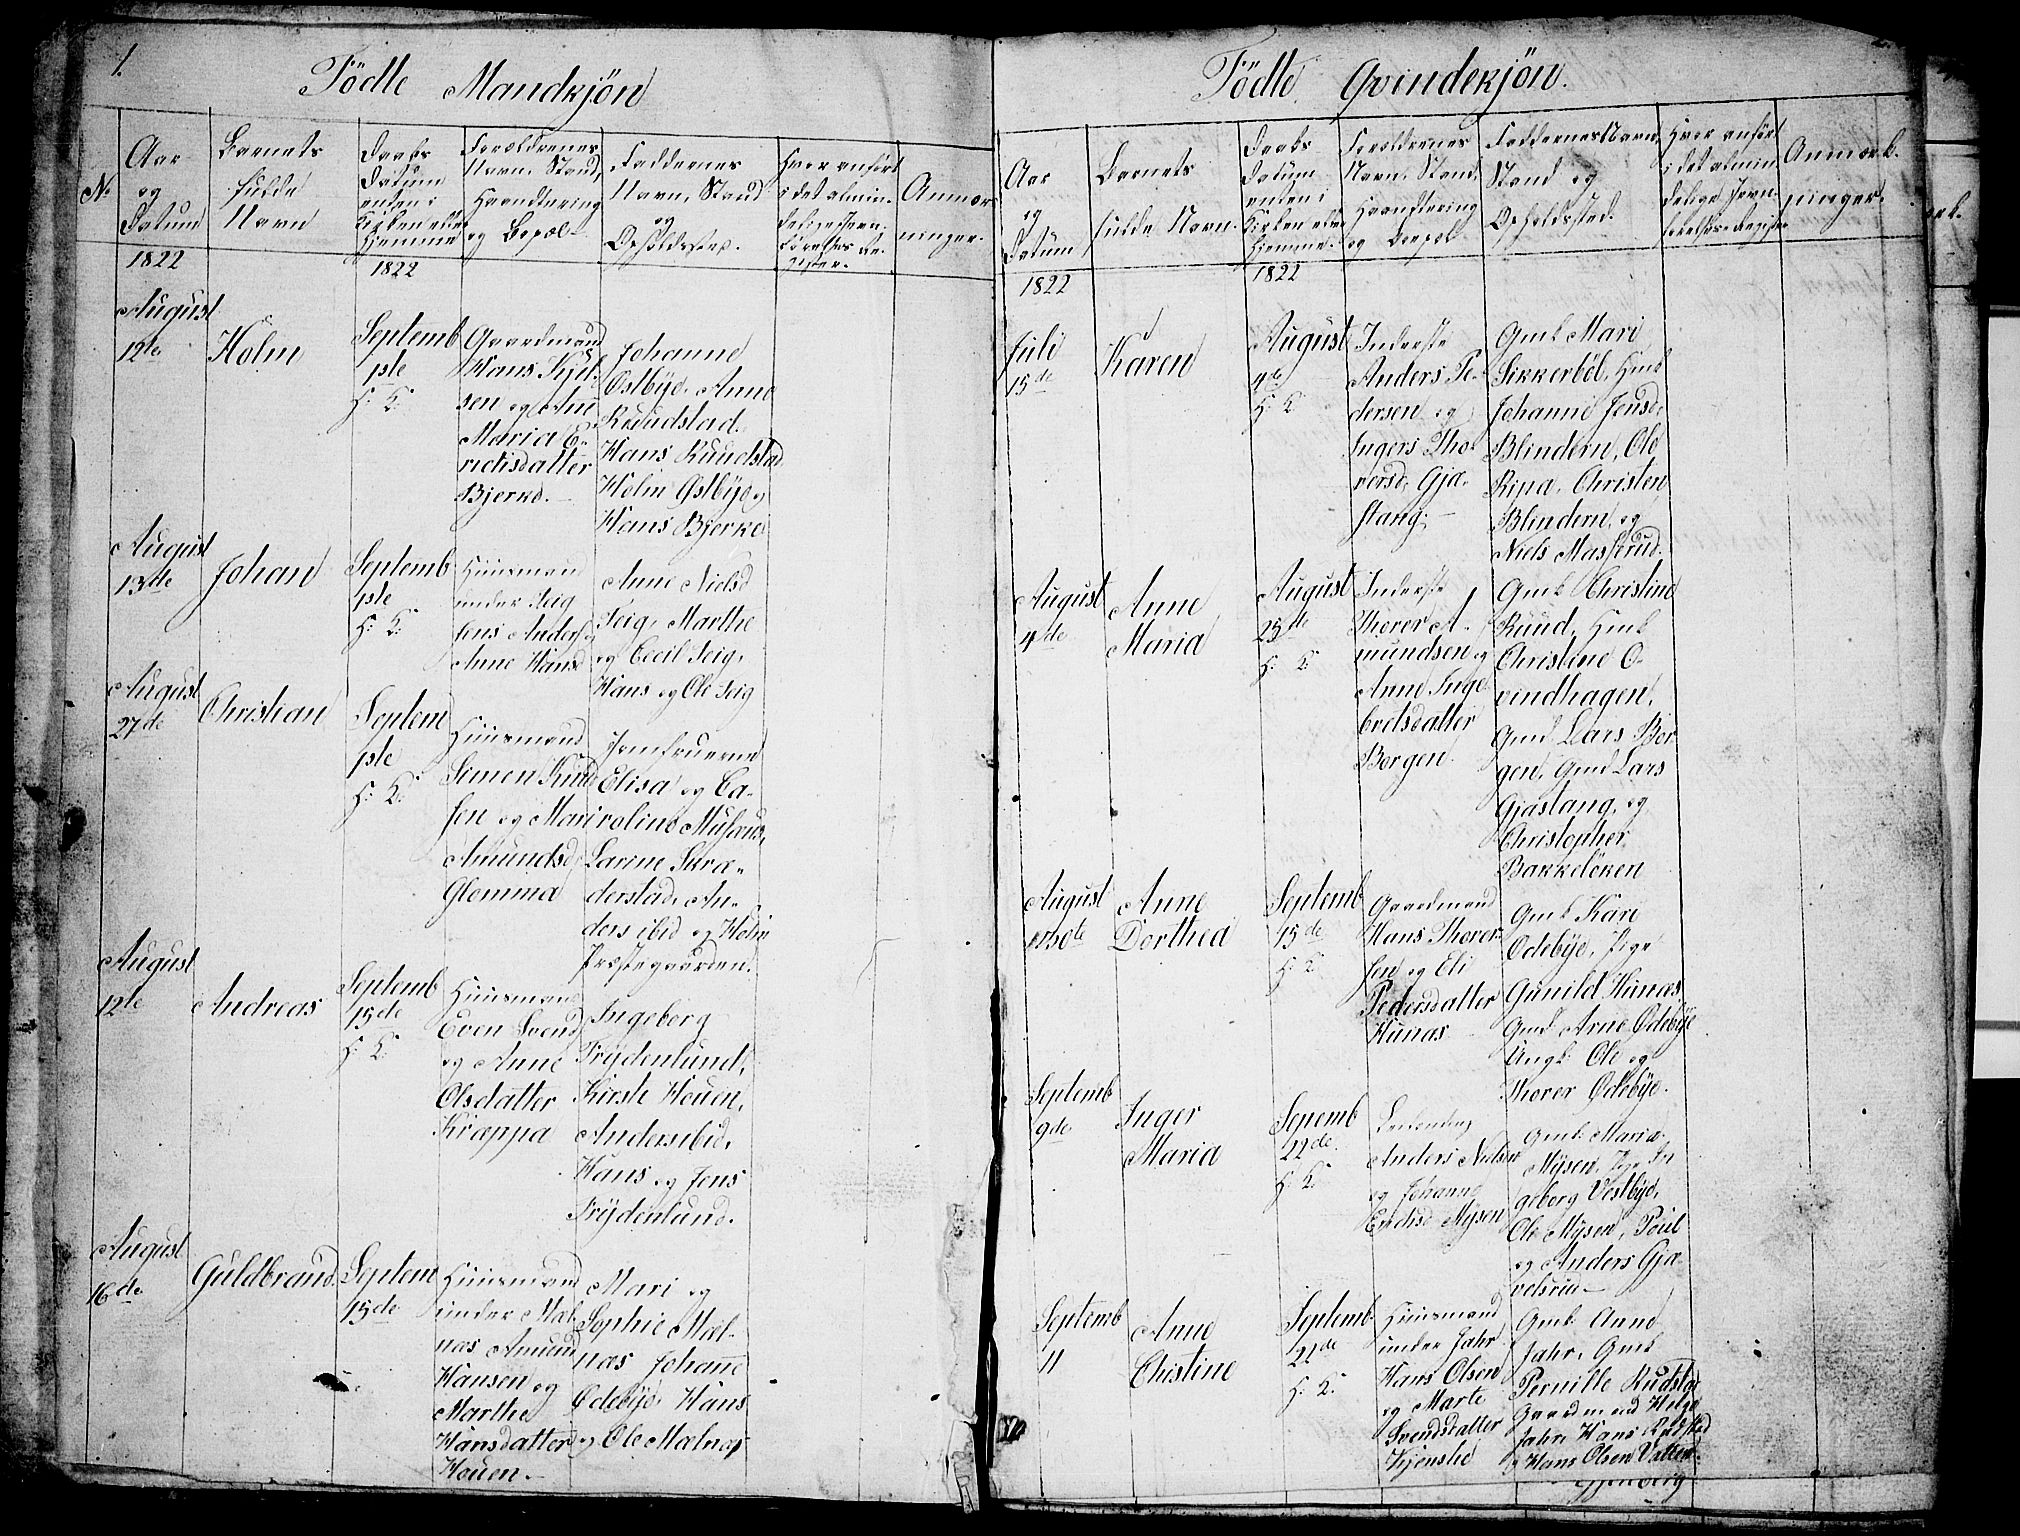 1.
Födte Mandkjön
No
Aar
og
Datum
Barnets
fulde
Navn
Daabs
Datum
enten i
Kirken eller
hjemme
Forældrenes
Navn, Stand,
Haandtering
og Bopæl
Faddernes
Navn, Stand
og
Opholdssted.
Hvor anført
i det almin-
delige Jevn-
førelses Re-
gister.
Anmær
ninger.
1822
1822
August
12te
Holm
Septemb
1ste
H: K:
Gaardmand
Hans
sen og Ane
Maria E-
richsdatter
Bjerke.
Johanne
Ostbye, Anne
Ruudstad
Hans Ruudstad
Holm Ostbye og
Hans Bjerke
August
13de
Johan
Septemb
1ste
H: K:
Huusmand
under
Jens Anders: og
Anne Hansd
Anne Nielsd
Marthe
og Cecil
Hans og Ole
August
27de
Christian
Septem
1ste
H: K:
Huusmand
Simen Knud
sen og Mari
Amundsd
Glemma
Jomfruerne
Elisa og Ca-
roline
Larine Skra-
derstad, An-
ders ibid og Holm
Præstegaarden.
August
12te
Andreas
Septemb
15de
H: K:
Huusmand
Even Svends
og Anne
Olsdatter
Kræppa
Ingeborg
Frydenlund,
Kirsti Houen,
Anders ibid,
Hans og Jens
Frydenlund.
August
16de
Guldbrand
Septem
15de
Huusmand
under Mæl-
næs Amund
Hansen og
Marthe
Hansdatter
Houen.
Mari og
Sophie Mæl-
næs Johanne
Odebye, Hans
og Ole Mælnæs
Födte Qvindekjön.
Aar
og
Datum
Barnets
fulde Navn.
Daabs-
Datum
enten i
Kirken eller
hjemme.
Forældrenes
Navn, Stand,
Haandtering
og Boepæl
Faddernes Navn,
Stand og
Opholdssted.
Hvor anført
i det almin
delige Jevn-
førelses-Register
Anmærk-
ninger.
1822
1822
Juli
15de
Karen
August
4de
H: K
Inderste
Anders Pe-
dersen og
Ingers Tho-
rersd, Gja-
stang.
Gmk Mari
Sikkerböl, Hmk
Johanne Jensd,
Blindern, Ole
Ripa, Christen
Blindern, og
Niels Masserud.
August
4de
Anne
Maria
August
25de
H: K:
Inderste
Thorer A-
mundsen og
Anne Inge-
bretsdatter
Borgen.
Gmk Christine
Ruud, Hmk
Christine O-
vindhagen,
Gmd Lars Bor
gen, Gmd Lars
Gjastang, og
Christopher
Bakkelöken
August
30te
Anne
Dorthea
Septemb
15de
H: K
Gaardmand
Hans Thorer-
sen og Eli
Pedersdatter
Hunæs
Gmk Kari
Odebye, Pige
Gunild Hunæs,
Gmd Arne Ödebye
Ungk: Ole og
Thorer Ödebye.
Septemb
9de
Inger
Maria
Sepemb
22de.
H: K:
Anders Nielsen
og Johanne
Erichsd Mysen
Gmk: Maria
Mysen, Pige In
geborg Vestbye,
Ole Mysen, Poul
og Anders Gja-
velsrud
Septemb
11
Anne
Chistine
Septemb
22de
H: K:
Huusmand
under Jahr
Hans Olsen
og Marte
Svendsdatter
Gmk: Anne
Jahr, Gmk
Pernille Rudstad
Gaardmand Helge
Jahr, Hans Rudstad
og Hans Olsen